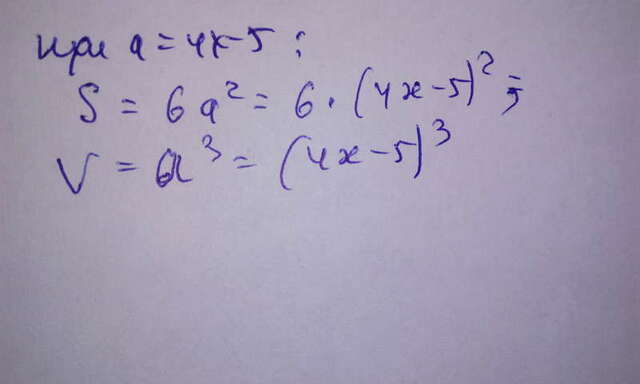 при a = 4x-5 :
S = 6a² = 6 · (4x-5)² ;
V = a³ = (4x-5)³